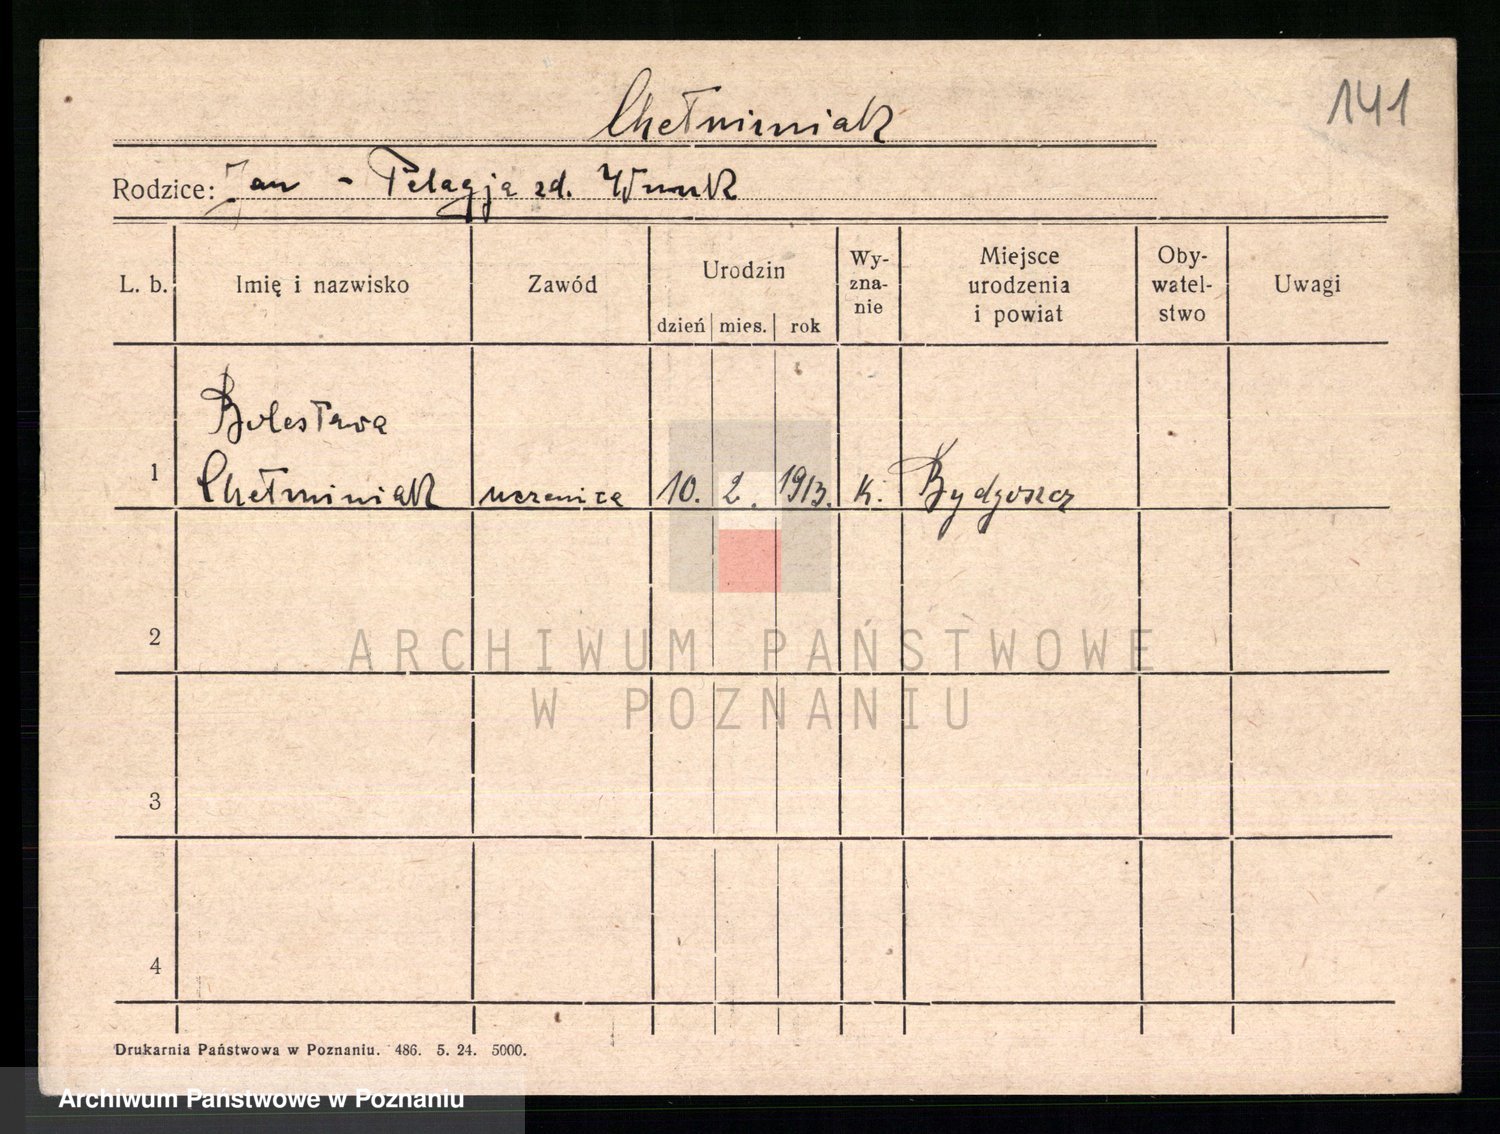 141
Chełminiak
Rodzice: Jan - Pelagja zd.
L. b. Imię i nazwisko Zawód Urodzin dzień mies. rok Wy-zna-nie Miejsce urodzenia i powiat Oby-watel-stwo Uwagi
Bolesława
1 Chełminiak uczenica 10. 2. 1913. k. Bydgoszcz
2
ARCHIWUM PAŃSTWOWE
W POZNANIU
3
4
Drukarnia Państwowa w Poznaniu. 486. 5. 24. 5000.
Archiwum Państwowe w Poznaniu